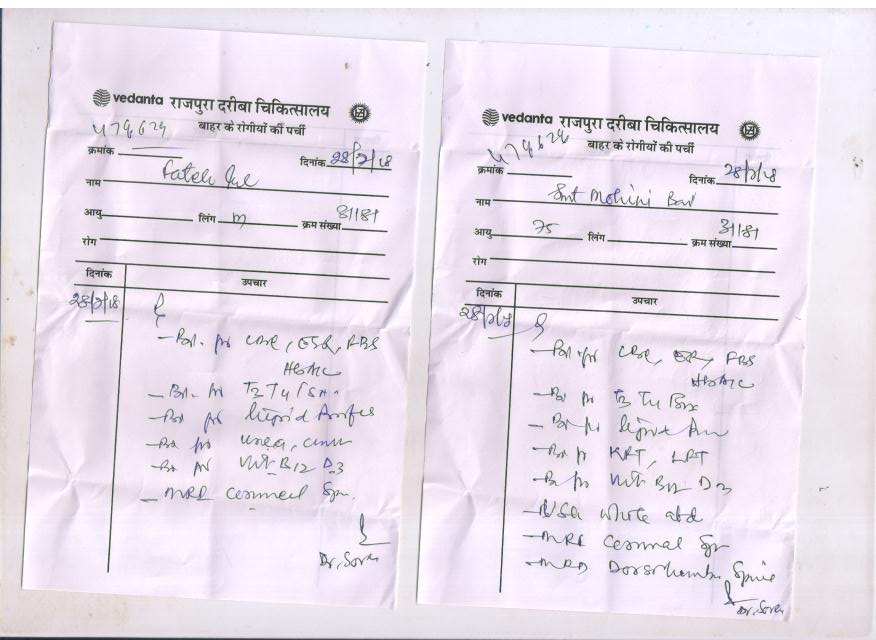 vedanta राजपुरा दरीबा चिकित्सालय
बाहर के रोगीयों की पर्ची
474624
क्रमांक दिनांक 28/2/18
नाम Fateh Lal
आयु लिंग m क्रम संख्या 31181
रोग
दिनांक उपचार
28/2/18
- Bl. for CBC, ESR, FBS
HbA1C
- Bl. for T3 T4 TSH
- Bl for lipid Profile
- Bl for urea,
- Bl for Vit B12 D3
- MRI Cervical Spi.
Dr. Soren
vedanta राजपुरा दरीबा चिकित्सालय
बाहर के रोगीयों की पर्ची
474624
क्रमांक दिनांक 28/2/18
नाम Smt Mohini Bai
आयु 75 लिंग क्रम संख्या 31181
रोग
दिनांक उपचार
28/2/18
- Bl. for CBC, ESR, FBS
HbA1C
- Bl for T3 T4
- Bl for lipid
- Bl for KFT, LFT
- Bl for Vit B12 D3
- USG whole abd
- MRI Cervical Sp
- MRI Dorsolumbar Spine
Dr. Soren